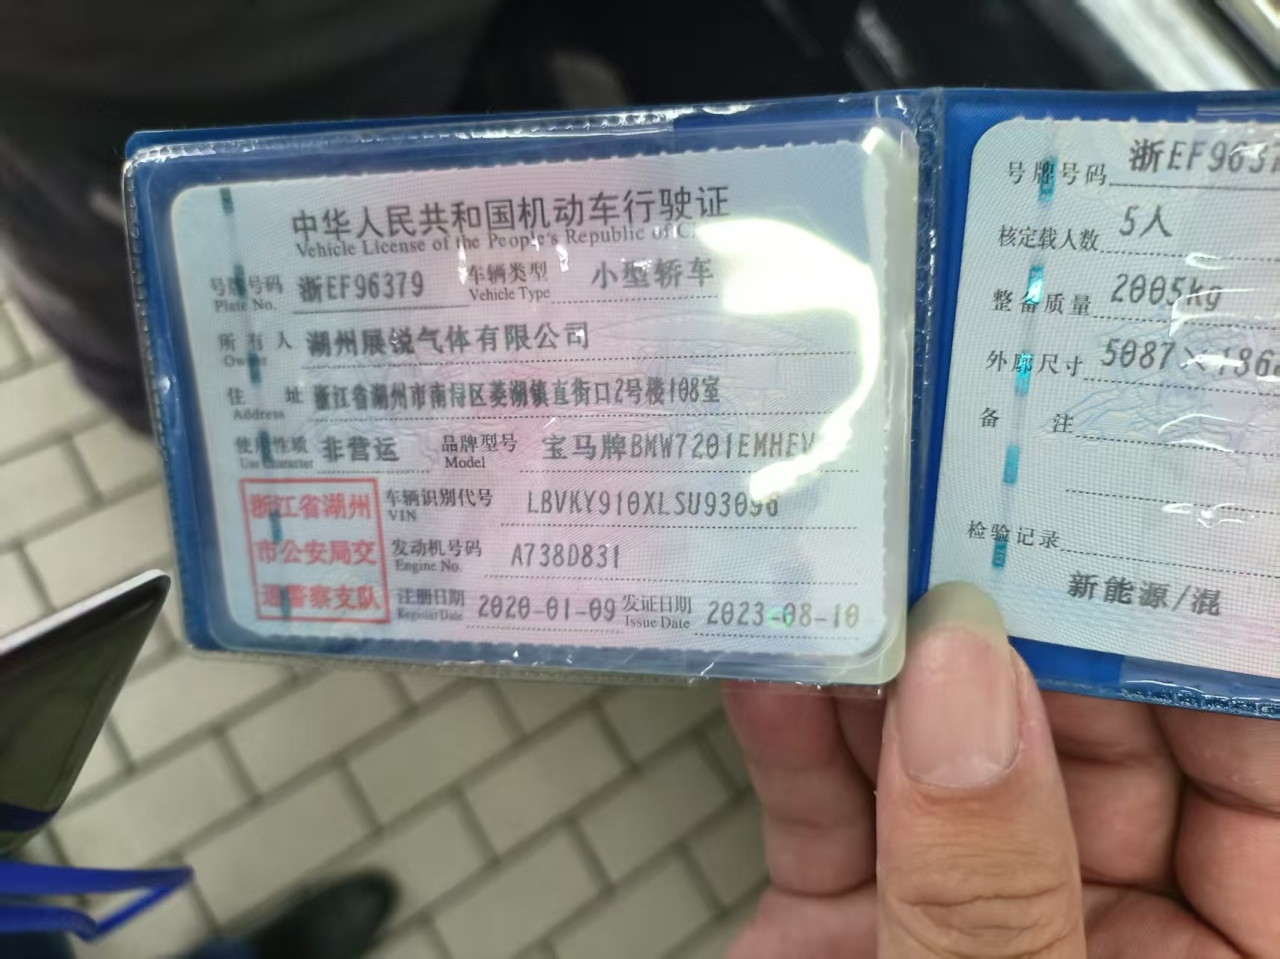 中华人民共和国机动车行驶证
Vehicle License of the People's Republic of
号牌号码 浙EF96379 车辆类型 小型轿车
Plate No. Vehicle Type
所有人 湖州展锐气体有限公司
Owner
住址 浙江省湖州市南浔区菱湖镇直街口2号楼108室
Address
使用性质 非营运 品牌型号 宝马牌BMW7201EMHEV
Use Character Model
浙江省湖州
市公安局交
通警察支队
车辆识别代号 LBVKY910XLSU93098
VIN
发动机号码 A738D831
Engine No.
注册日期 2020-01-09 发证日期 2023-08-10
Register Date Issue Date
号牌号码 浙EF9637
核定载人数 5人
整备质量 2005kg
外廓尺寸 5087×186
备注
检验记录
新能源/混